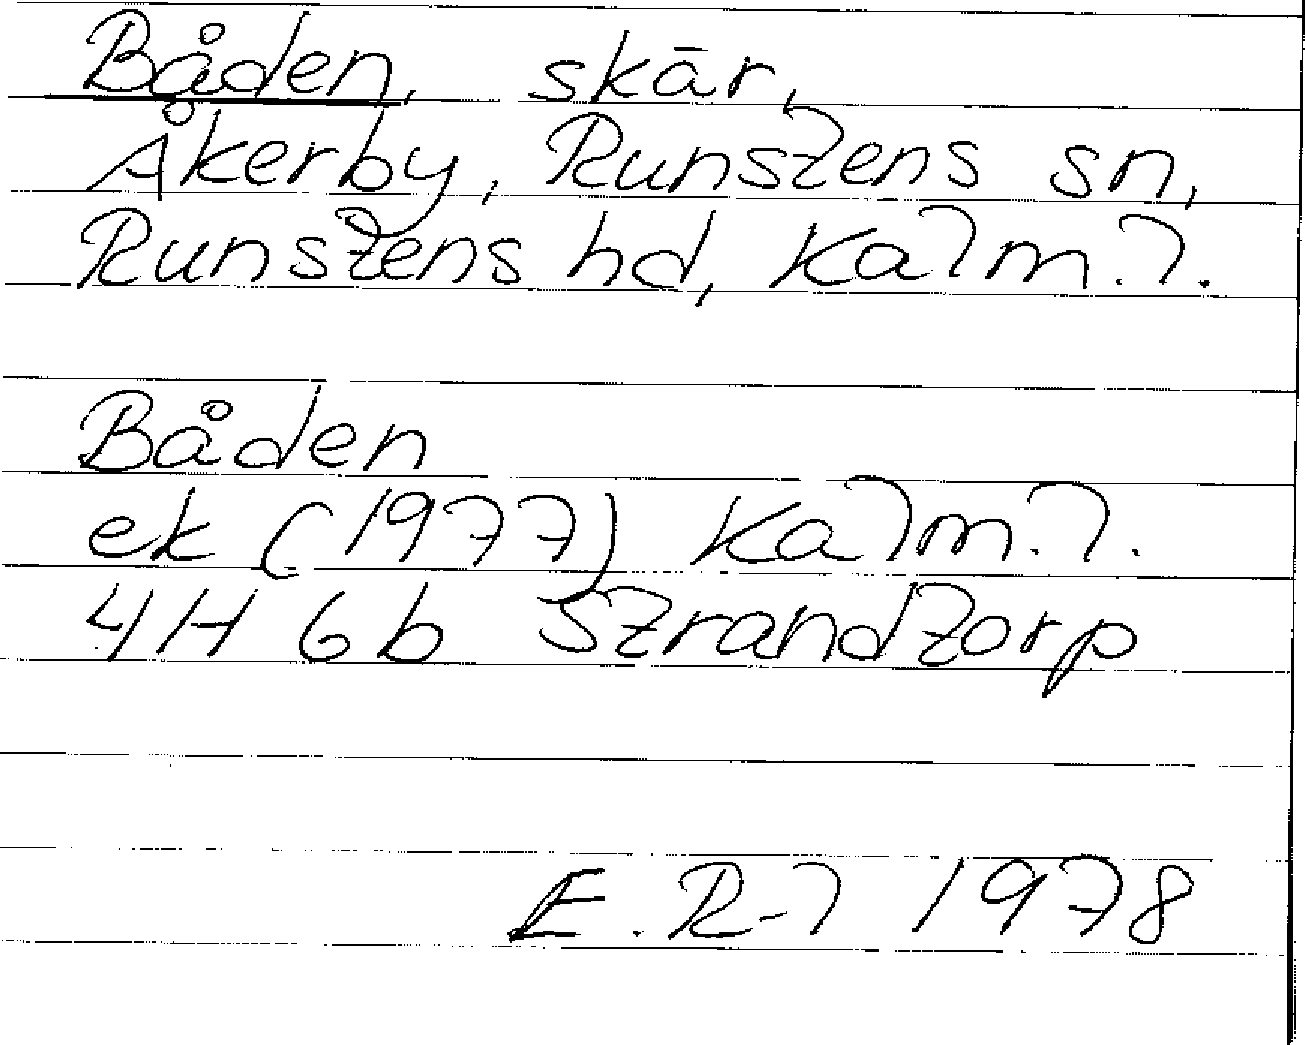 Båden, skär,
Åkerby, Runstens sn,
Runstens hd, Kalm. l.
Båden
ek (1977) Kalm. l.
4H 6b Strandtorp
E. R-l 1978